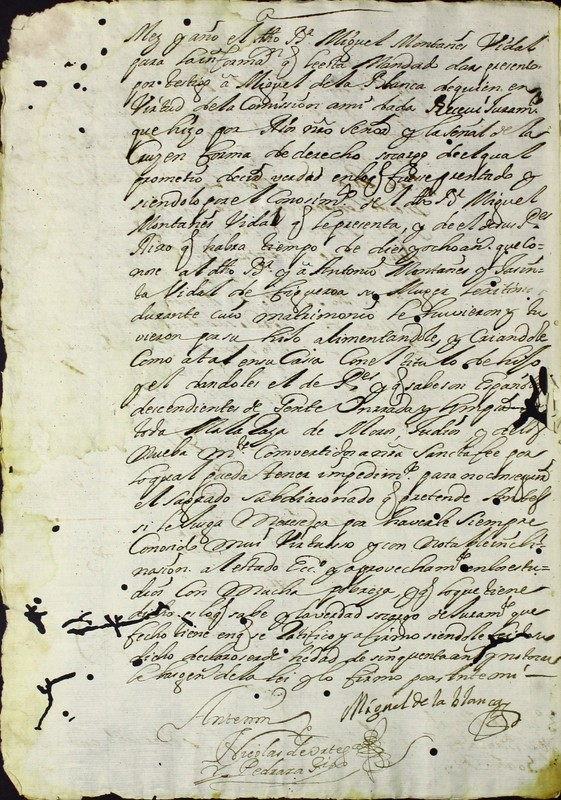 Mes y año el dho Br Miguel Montañes Vidal
para la informaⁿ q le esta Mandad dar presento
por testigo a Miguel de la Blanca de quien en
Virtud de la Comission a mi dada Reciui Juramto
que hizo por Dios nro Señor y la Señal de la
Cruz en forma de derecho so cargo del qual
prometio decir verdad en lo q fuese preguntado y
siendolo por el Conosimto de l dho Br Miguel
Montañes Vidal q le presenta, y de el de sus Pes
Dixo q habra tiempo de diez y ocho as que co-
nose al dho Br y a Antonio Montañes y Jasin-
ta Vidal de Figueroa su Muger lexitima
durante cuio matrimonio le huvieron y tu
vieron por su hijo alimentandole y Criandole
Como a tal en su Casa Con el titulo de hijo
y el dandoles el de Pes y q sabe son Españoles
descendientes de Gente Onrrada y limpia
toda Mala Raza de Moros Judios y de los
nueba mte Convertidos a nra Sancta fee por
lo qual pueda tener impedimto para no conseguir
el sagrado subdiaconado q pretende Antes
si le Jusga Meresedor por haverle siempre
Conosido mui Virtuoso y con notable incli-
nasion al estado Ecco y aprovechamto en los estu-
dios con mucha pobreza, y q lo que tiene
dicho es lo q sabe y la verdad so cargo del Juramto que
fecho tiene en q se Ratifico y afirmo siendole
dicho declaro ser de hedad de sinquenta años
le tocan las de la lei y lo firmo por ante mi
Miguel de la blanca
Ante mi
Nicolas de Ortega
Y Pedraza